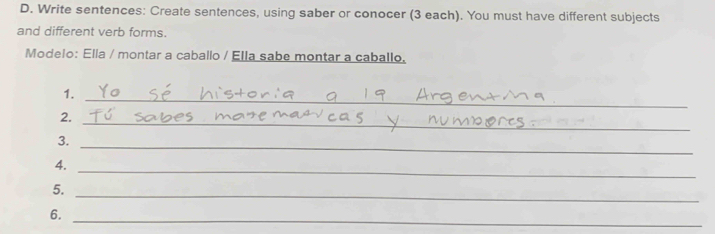 D. Write sentences: Create sentences, using saber or conocer (3 each). You must have different subjects
and different verb forms.
Modelo: Ella / montar a caballo / Ella sabe montar a caballo.
1. Yo sé historia a la Argentina
2. Tú sabes matematicas y numbores.
3.
4.
5.
6.